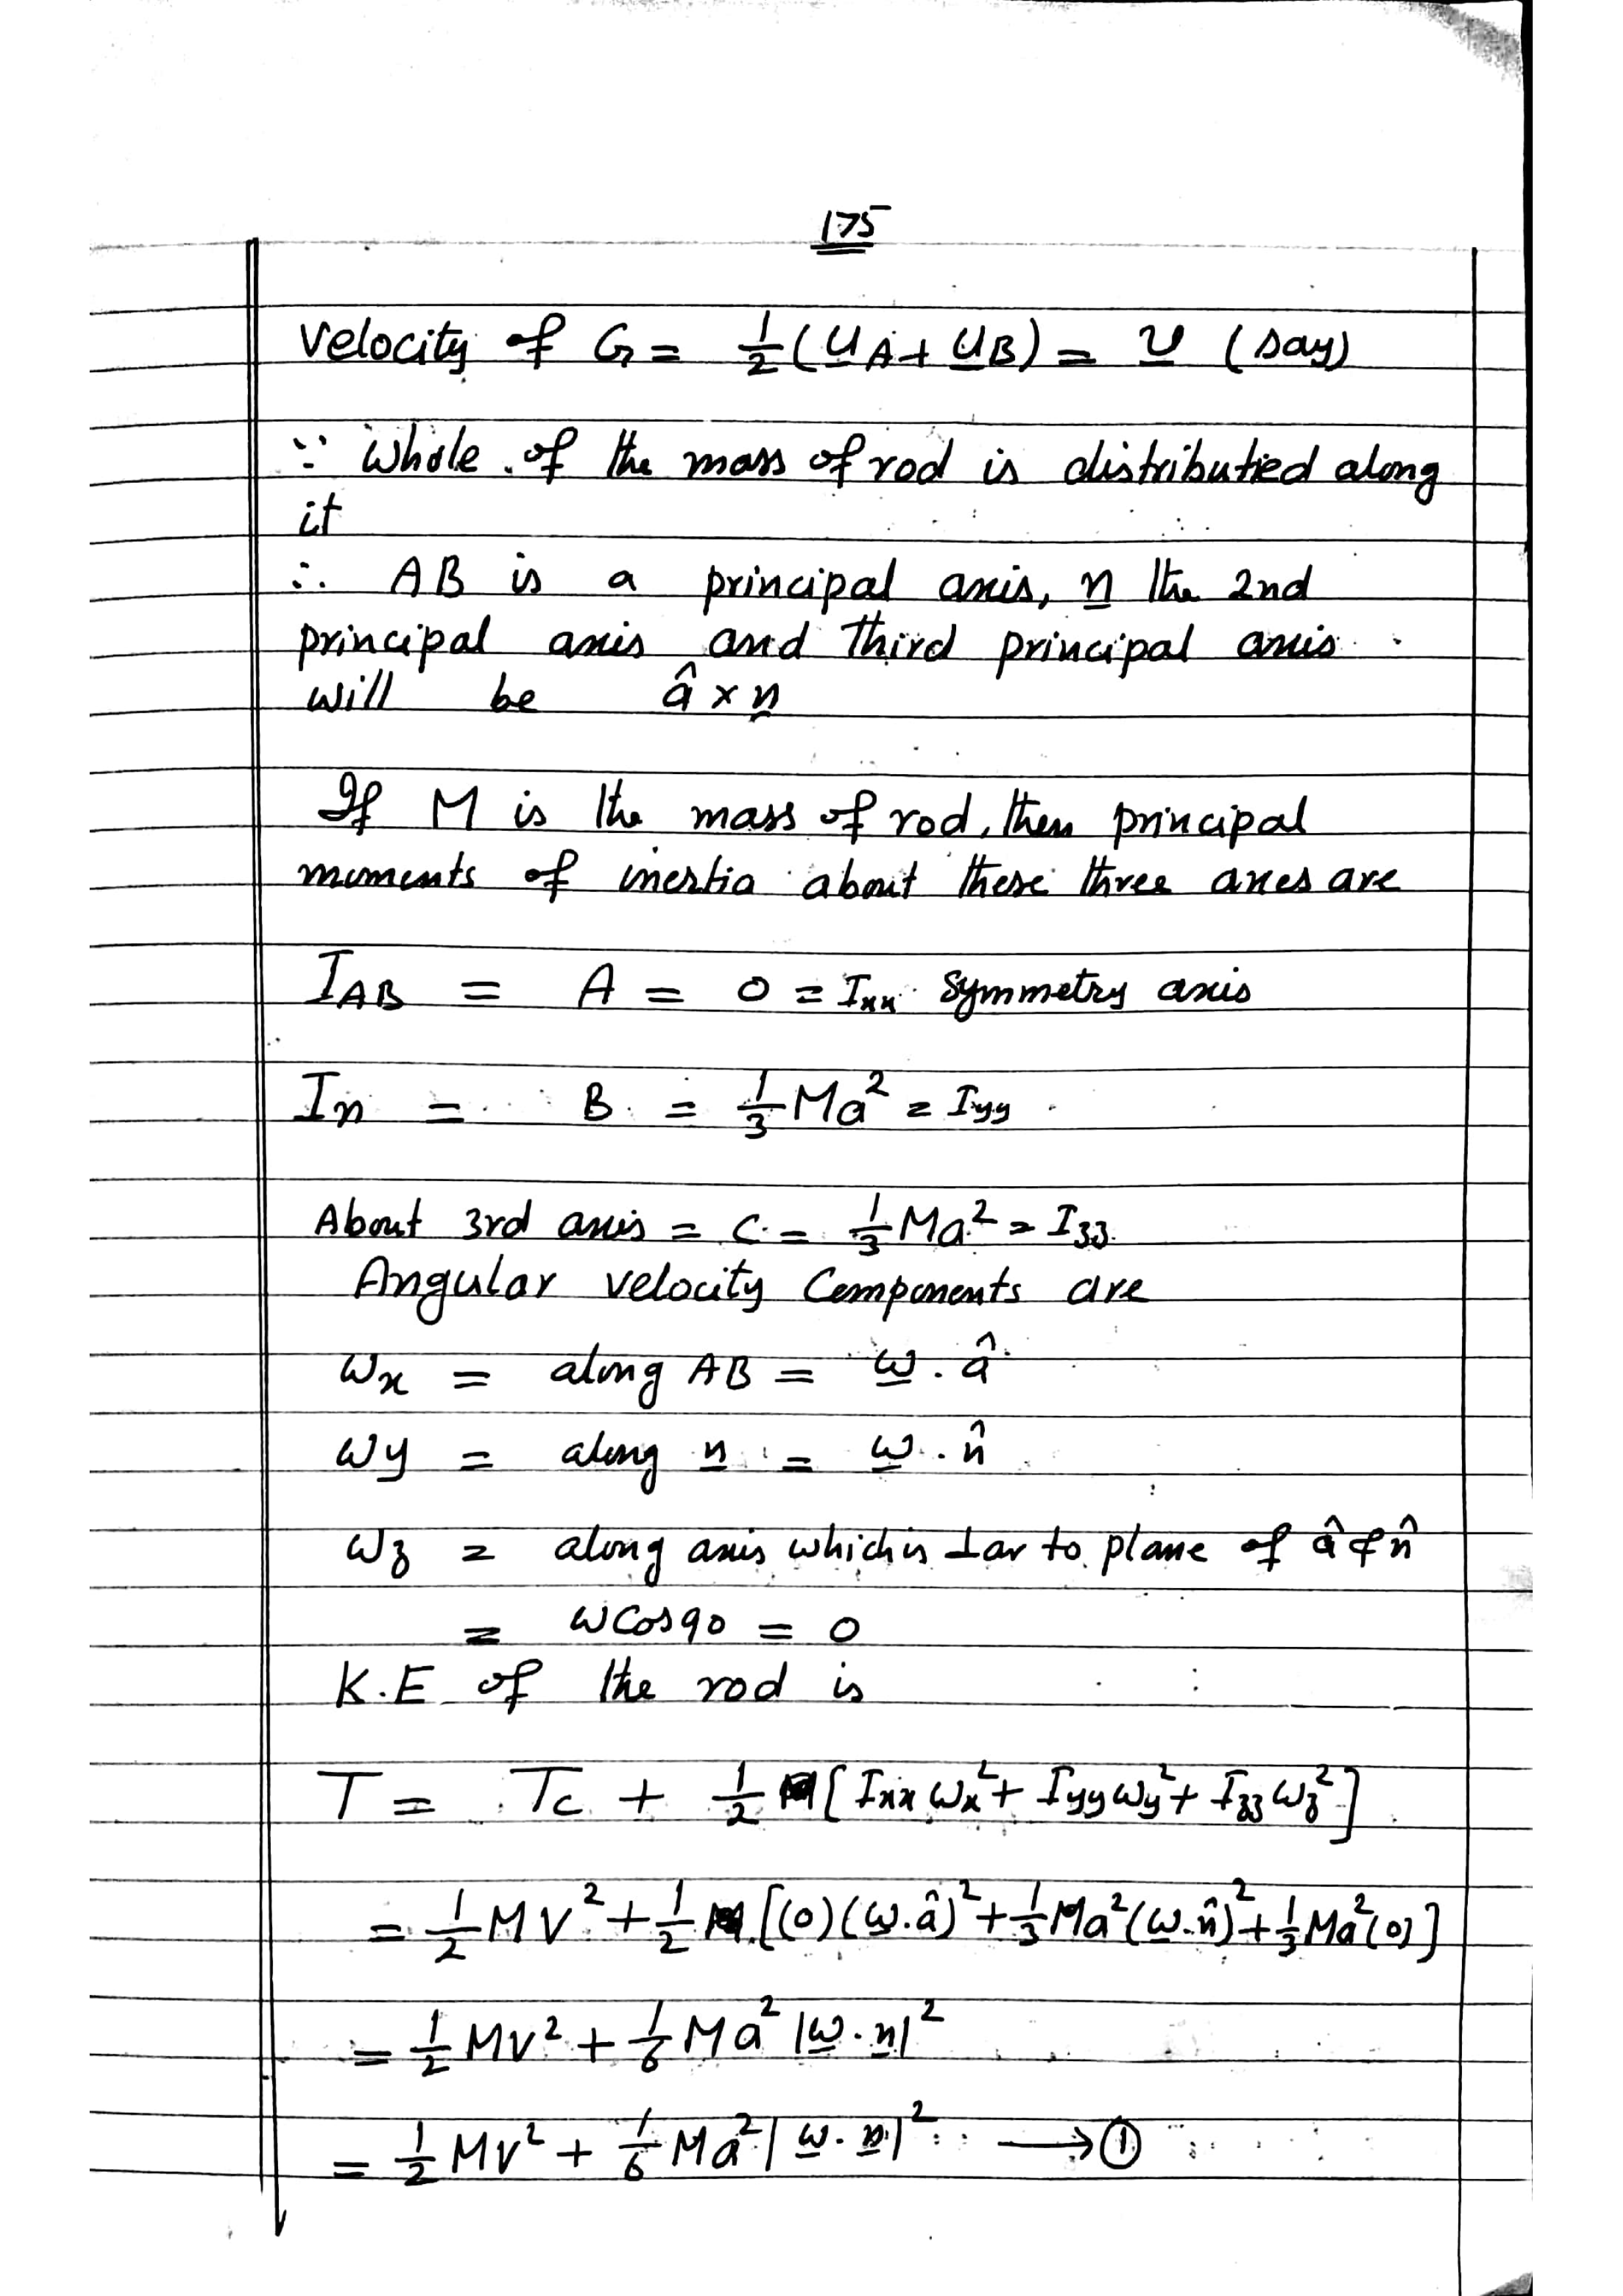 175
Velocity of G = 1/2 (u̲A + u̲B) = v̲ (say)
∵ Whole of the mass of rod is distributied along
it
∴ AB is a principal axis, n̲ the 2nd
principal axis and third principal axis
will be â × n̲
If M is the mass of rod, then principal
moments of inertia about these three axes are
I_AB = A = 0 = Ixx Symmetry axis
In = B = 1/3 Ma² = Iyy
About 3rd axis = C = 1/3 Ma² = Izz
Angular velocity Components are
ωx = along AB = ω̲ . â
ωy = along n̲ = ω̲ . n̂
ωz = along axis which is ⊥ar to plane of â & n̂
= ω Cos 90 = 0
K.E of the rod is
T = Tc + 1/2 [Ixx ωx² + Iyy ωy² + Izz ωz²]
= 1/2 MV² + 1/2 [(0)(ω̲.â)² + 1/3 Ma²(ω̲.n̂)² + 1/3 Ma²(0)]
= 1/2 MV² + 1/6 Ma² |ω̲.n̲|²
= 1/2 MV² + 1/6 Ma² |ω̲.n̲|² → ①